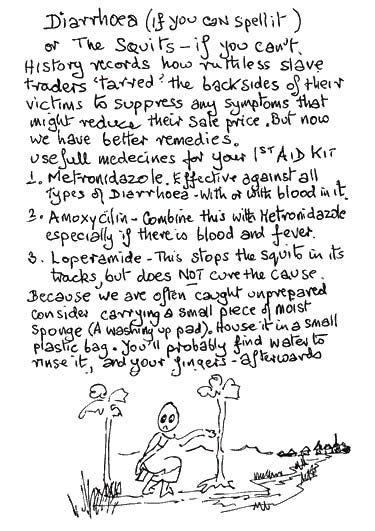 Diarrhoea (if you can spell it)
or The Squits - if you can't.
History records how ruthless slave
traders 'tarred' the backsides of their
victims to suppress any symptoms that
might reduce their sale price. But now
we have better remedies.
Usefull medecines for your 1ST AID KIT
1. Metronidazole. Effective against all
Types of Diarrhoea - with or with blood in it.
2. Amoxycilin - Combine this with Metronidazole
especially if there is blood and fever.
3. Loperamide - This stops the squits in its
tracks, but does NOT cure the cause.
Because we are often caught unprepared
consider carrying a small piece of moist
sponge (A washing up pad). House it in a small
plastic bag. You'll probably find water to
rinse it, and your fingers - afterwards